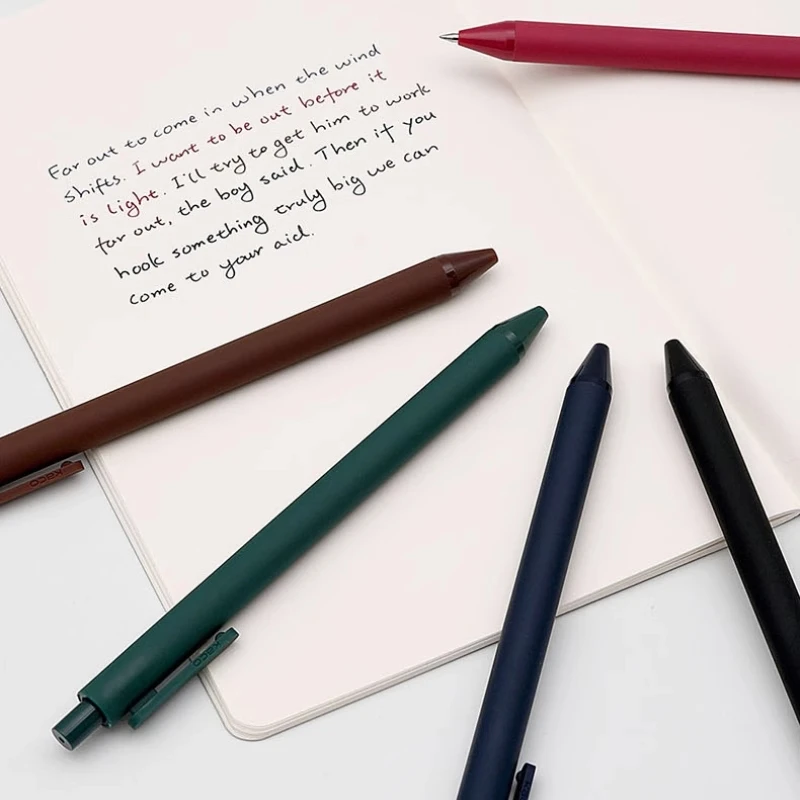 Far out to come in when the wind
shifts. I want to be out before it
is light. I'll try to get him to work
far out, the boy said. Then if you
hook something truly big we can
come to your aid.
KACO
KACO